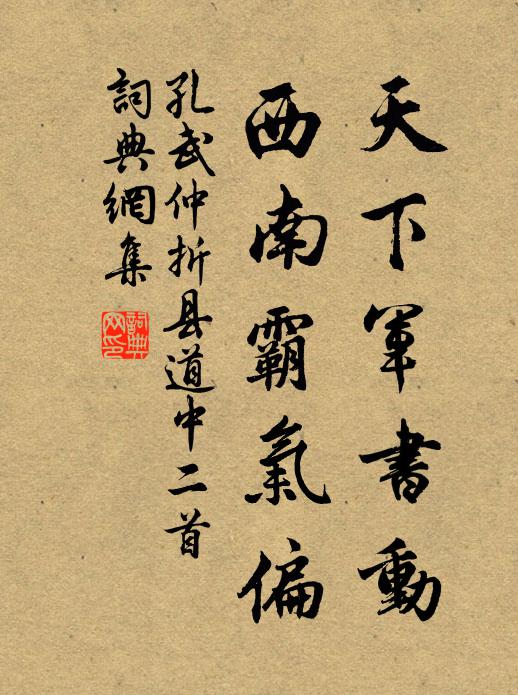 天下軍書動
西南霸氣偏
孔武仲折县道中二首
詞典網集
詞典網印